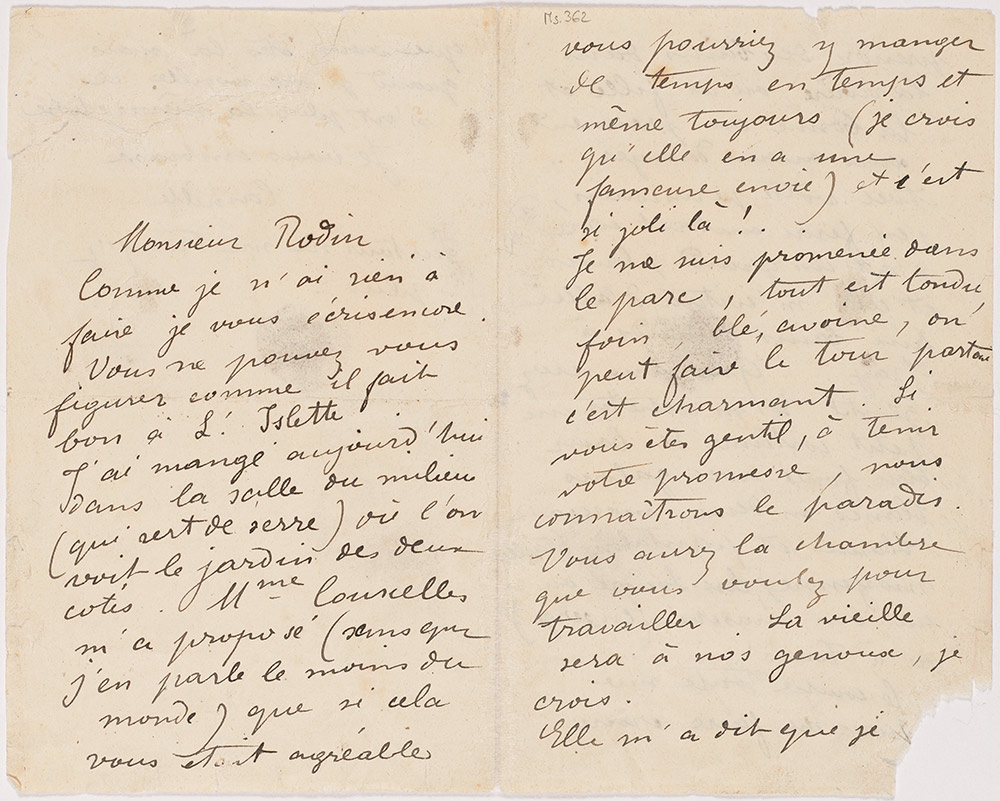 Ms. 362
Monsieur Rodin
Comme je n'ai rien à
faire je vous écris encore.
Vous ne pouvez vous
figurer comme il fait
bon à L'Islette
J'ai mangé aujourd'hui
dans la salle du milieu
(qui sert de serre) où l'on
voit le jardin des deux
cotés. Mme Courcelles
m'a proposé (sans que
j'en parle le moins du
monde) que si cela
vous était agréable
vous pourriez y manger
de temps en temps et
même toujours (je crois
qu'elle en a une
fameuse envie) et c'est
si joli là!..
Je me suis promenée dans
le parc, tout est tondu,
foin, blé, avoine, on
peut faire le tour partout
c'est charmant. Si
vous êtes gentil, à tenir
votre promesse, nous
connaîtrons le paradis.
Vous aurez la chambre
que vous voulez pour
travailler. La vieille
sera à nos genoux, je
crois.
Elle m'a dit que je